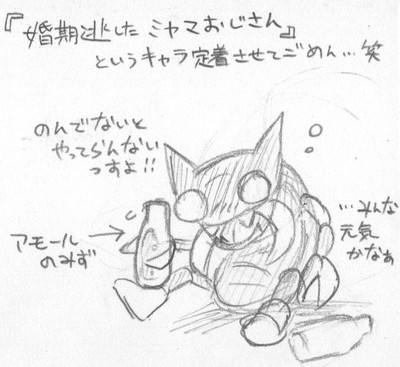 『婚期逃した ミヤマおじさん』
というキャラ定着させてごめん…笑
のんでないと
やってらんない
っすよ!!
アモール
のみず
…みんな
元気
かなぁ